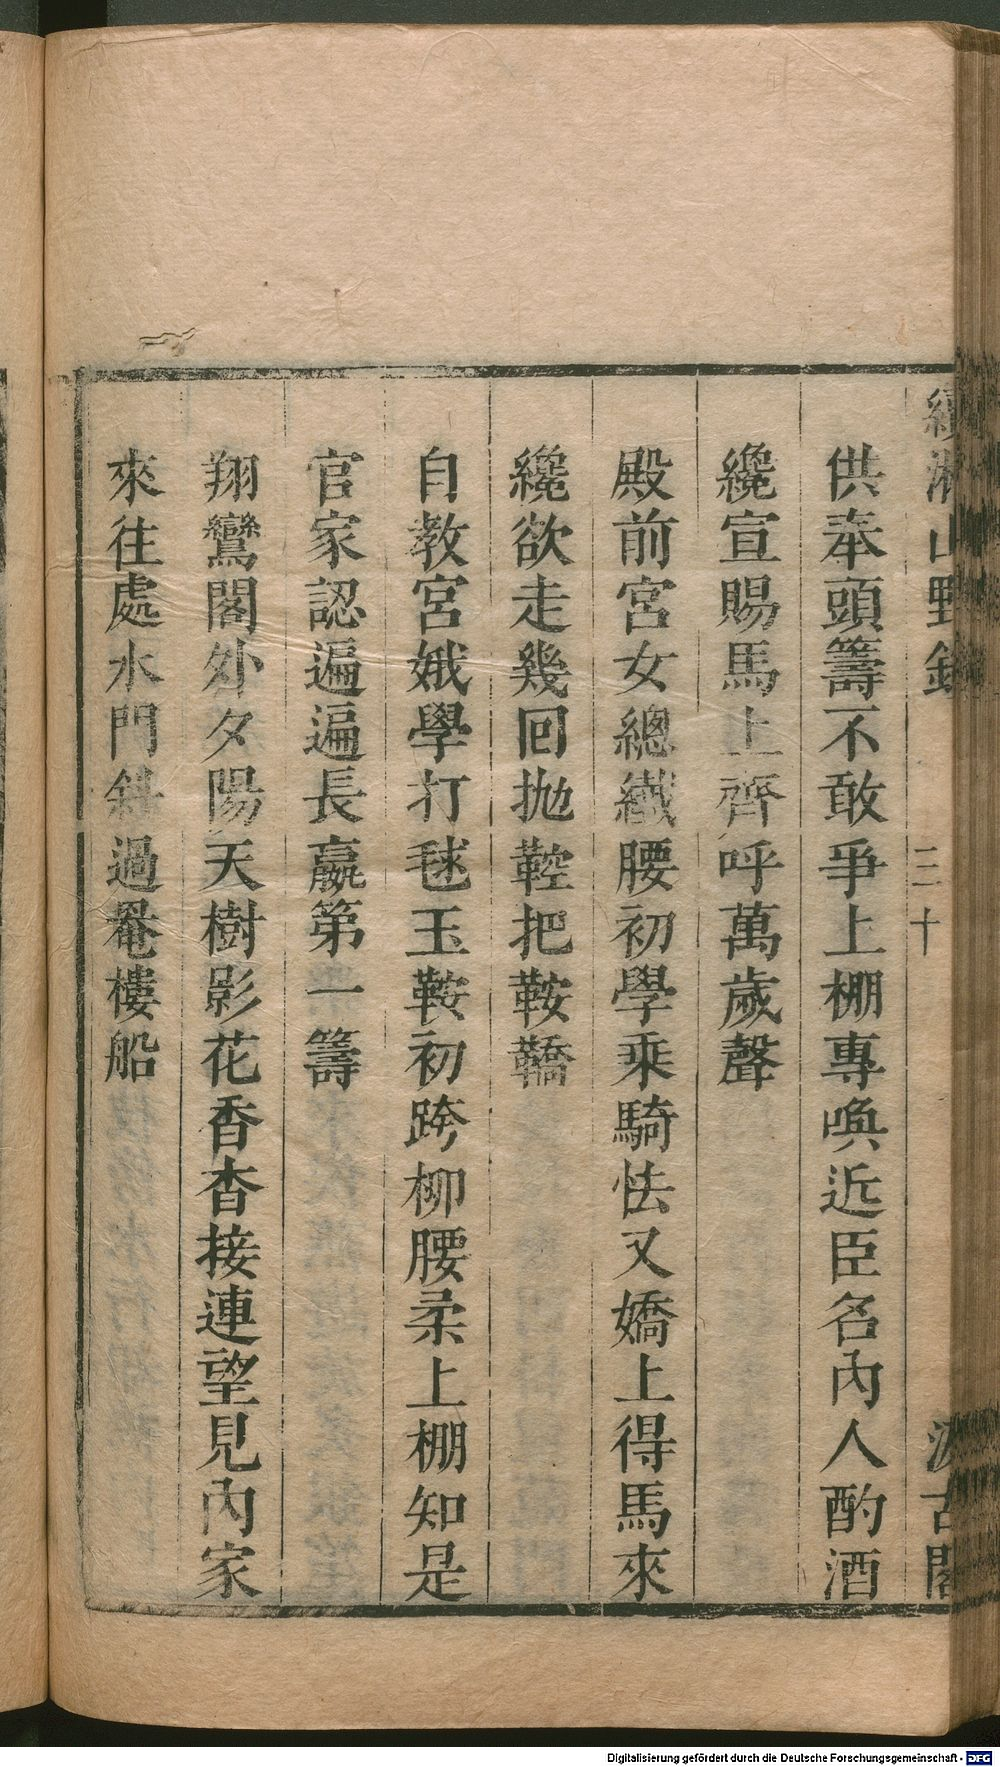 續湘山野錄 三十 汲古閣
供奉頭籌不敢爭上棚專喚近臣名內人酌酒
纔宣賜馬上齊呼萬歲聲
殿前宮女總纖腰初學乘騎怯又嬌上得馬來
纔欲走幾回抛鞚把鞍鞽
自教宮娥學打毬玉鞍初跨柳腰柔上棚知是
官家認遍遍長嬴第一籌
翔鸞閣外夕陽天樹影花香杳接連望見內家
來往處水門斜過罨樓船
Digitalisierung gefördert durch die Deutsche Forschungsgemeinschaft - DFG